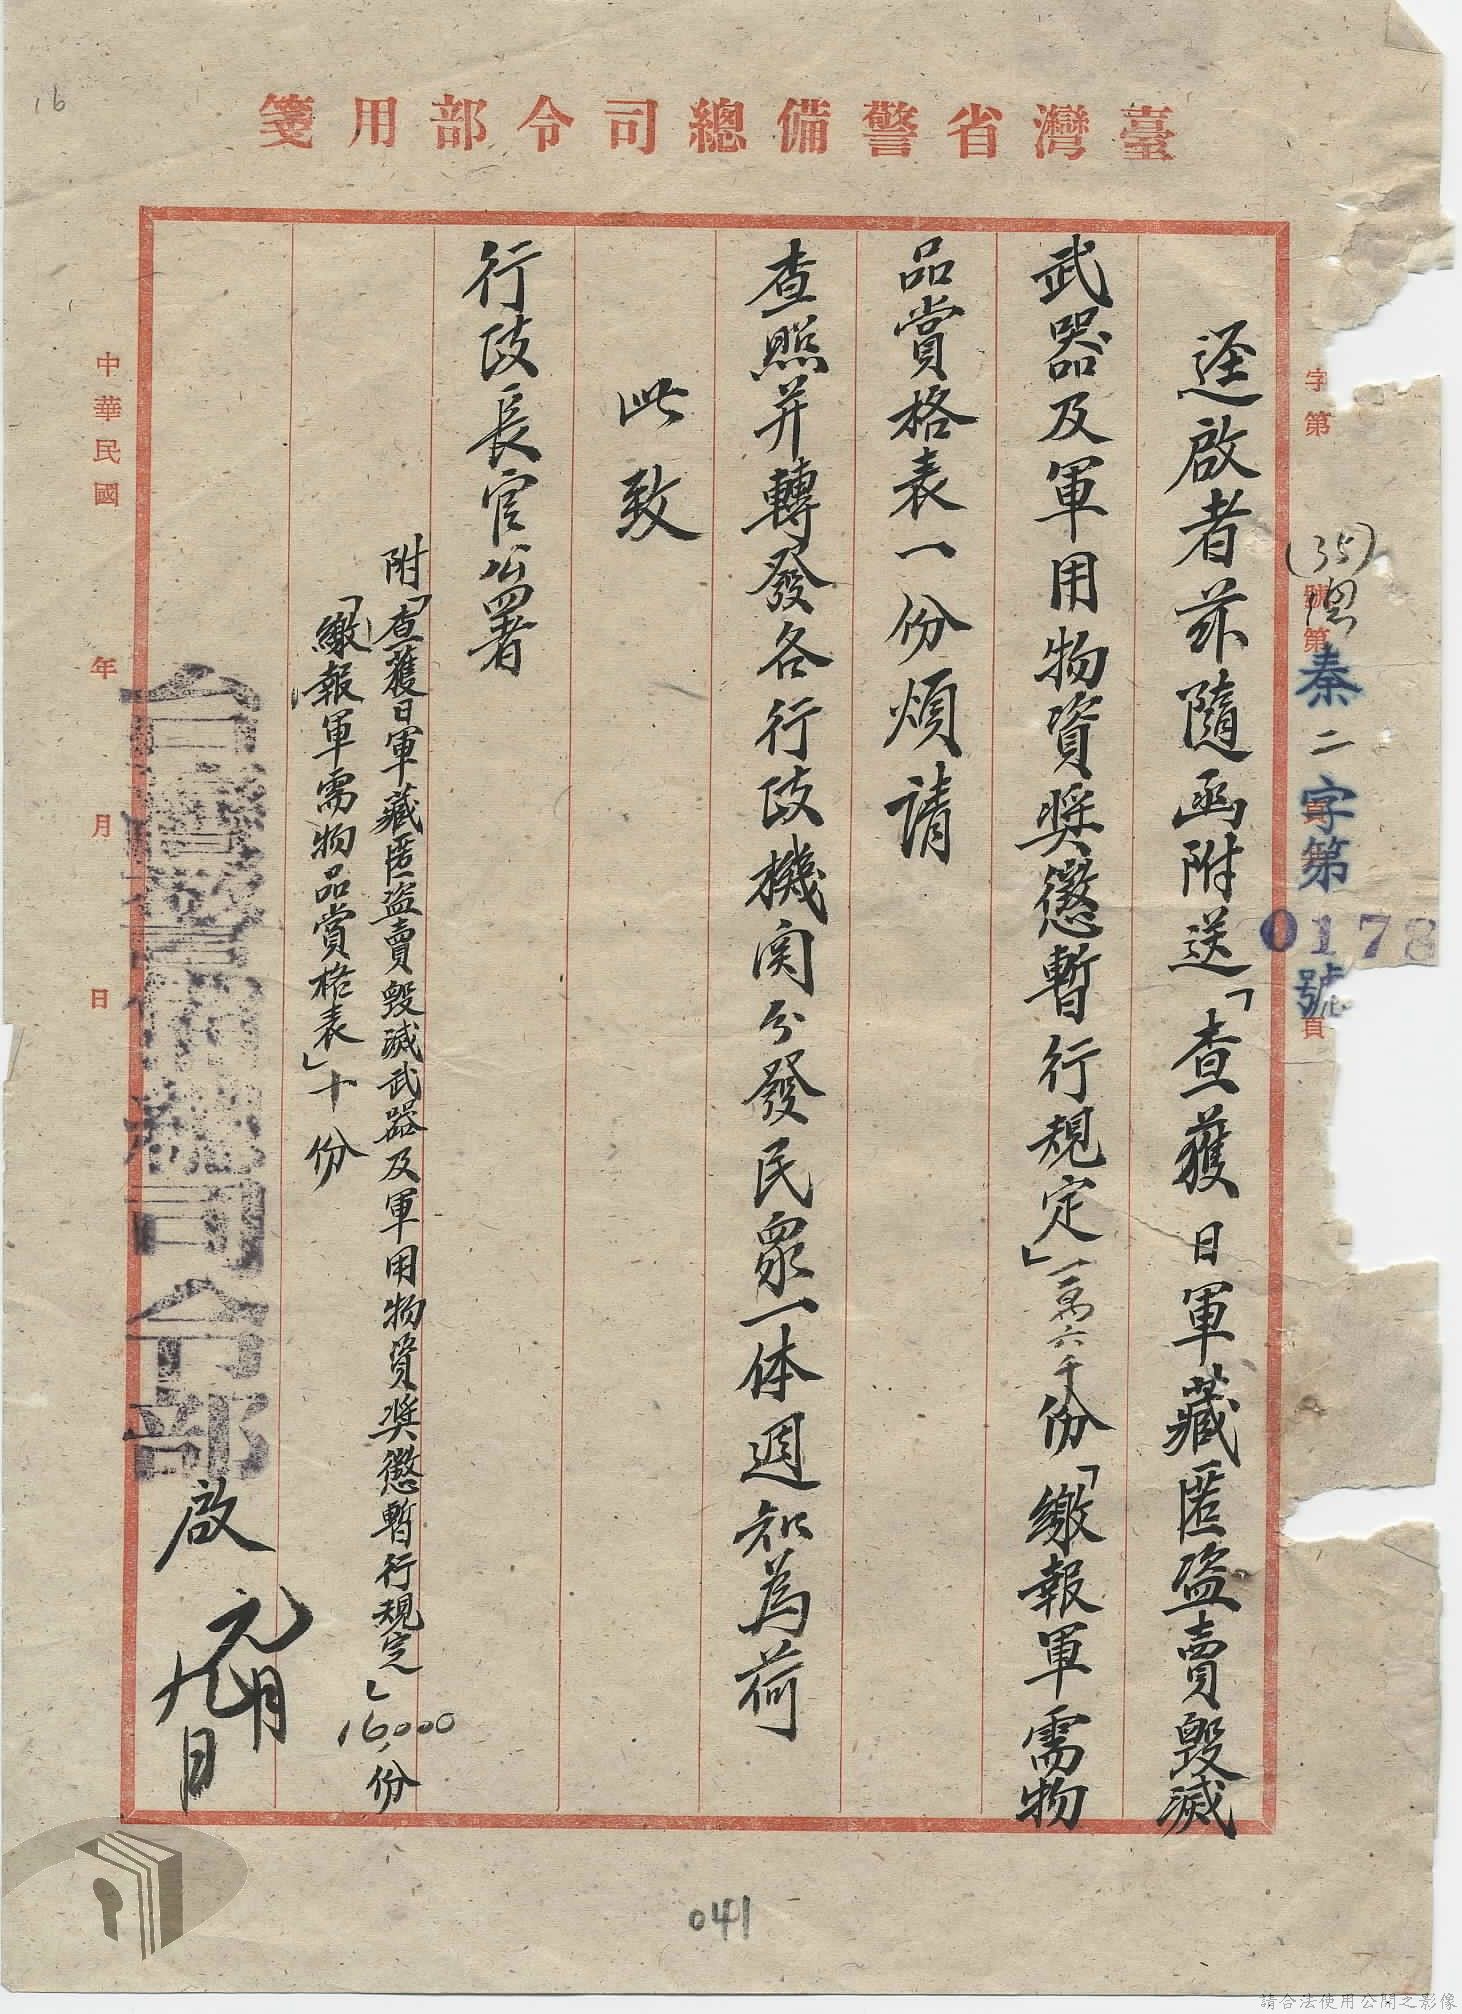 16
臺灣省警備總司令部用箋
字第 號第 頁
(35)
秦二字第0178號
逕啟者茲隨函附送「查獲日軍藏匿盜賣毀滅
武器及軍用物資獎懲暫行規定」一萬六千份「繳報軍需物
品賞格表一份煩請
查照并轉發各行政機関分發民眾一体週知為荷
此致
行政長官公署
附「查獲日軍藏匿盜賣毀滅武器及軍用物資獎懲暫行規定」16000份
「繳報軍需物品賞格表」十份
台灣警備總司令部 啟 元月九日
中華民國 年 月 日
041
請合法使用公開之影像